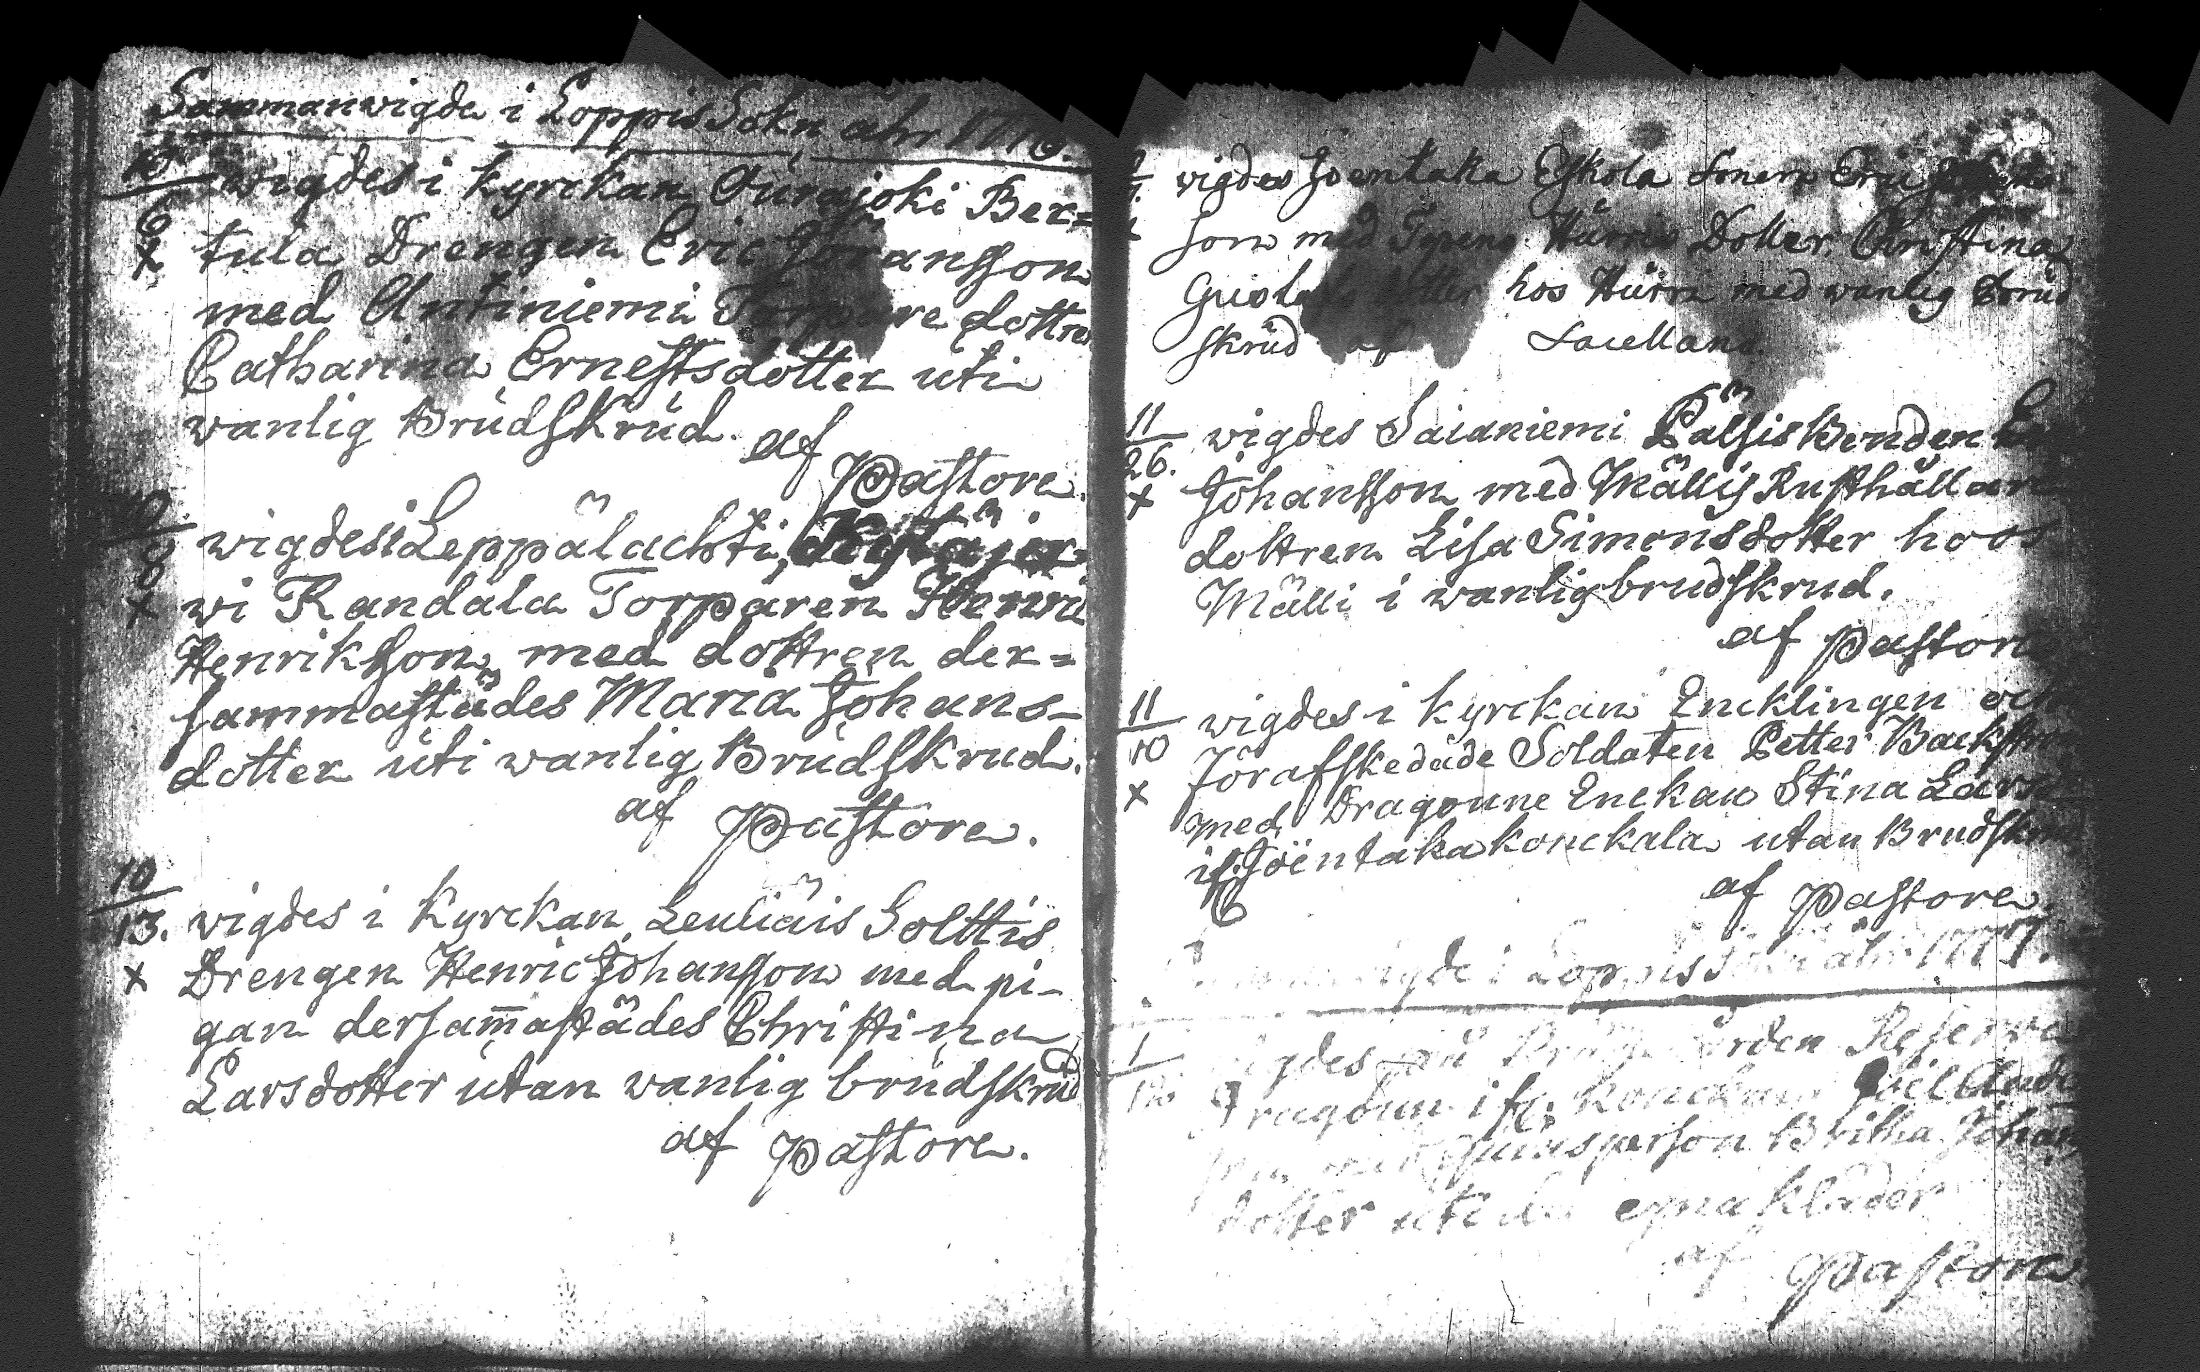 Sammanwigde i Loppis Sokn åhr 1776.
10
6
x
wigdes i kyrckan Ourajoki Ber=
tula Drengen Eric Göransson
med Antiniemi Torpare dottren
Catharina Ernestsdotter uti
wanlig BrudSkrud. af
Pastore.
10
8
x
wigdes i Leppälachti,
wi Randala Torparen Henric
Henriksson, med dottren der=
sammastädes Maria Johans-
dotter uti wanlig BrudSkrud.
af Pastore.
10
13.
x
wigdes i Kyrckan, Leuliäis Solttis
Drengen Henric Johansson med pi-
gan dersam̄astädes Christina
Larsdotter utan wanlig brudskrud
af Pastore.
wigdes Joentaka Eskola Sonen Eric
son med Hürris Dotter Christina
hos Hürri med wanlig Brud
skrud af Sacellano.
11
26.
x
wigdes Saianiemi Pälsis Bonden
Johansson med Mällis Rusthållare
dottren Lisa Simonsdotter hoos
Mälli i wanlig brudskrud.
af Pastore
11
10
x
wigdes i kyrckan Encklingen och
förafskedade Soldaten Petter Backström
med Dragoune Enckan Stina Lars
ifr. Joëntaka konckala utan Brudskrud
af Pastore.
i Loppis Sokn åhr 1777.
1
wigdes
Dragoun ifr.
qwinsperson Britha Johans
dotter uti egna kläder
af Pastore